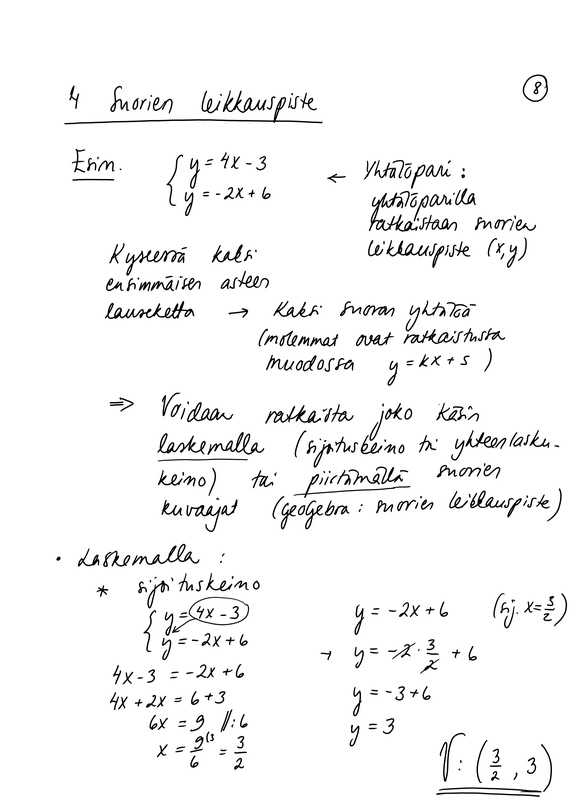 4 Suorien leikkauspiste
8
Esim.
{ y = 4x - 3
y = -2x + 6
← Yhtälöpari :
yhtälöparilla
ratkaistaan suorien
leikkauspiste (x,y)
Kyseessä kaksi
ensimmäisen asteen
lauseketta → Kaksi suoran yhtälöä
(molemmat ovat ratkaistussa
muodossa y = kx + s )
⇒ Voidaan ratkaista joko käsin
laskemalla (sijoituskeino tai yhteenlasku-
keino) tai piirtämällä suorien
kuvaajat (geogebra : suorien leikkauspiste)
• Laskemalla :
* sijoituskeino
{ y = 4x - 3
y = -2x + 6
4x - 3 = -2x + 6
4x + 2x = 6 + 3
6x = 9 ||:6
x = 9/6 (3 = 3/2
y = -2x + 6 (sij. x = 3/2)
→ y = -2 · 3/2 + 6
y = -3 + 6
y = 3
V : (3/2 , 3)